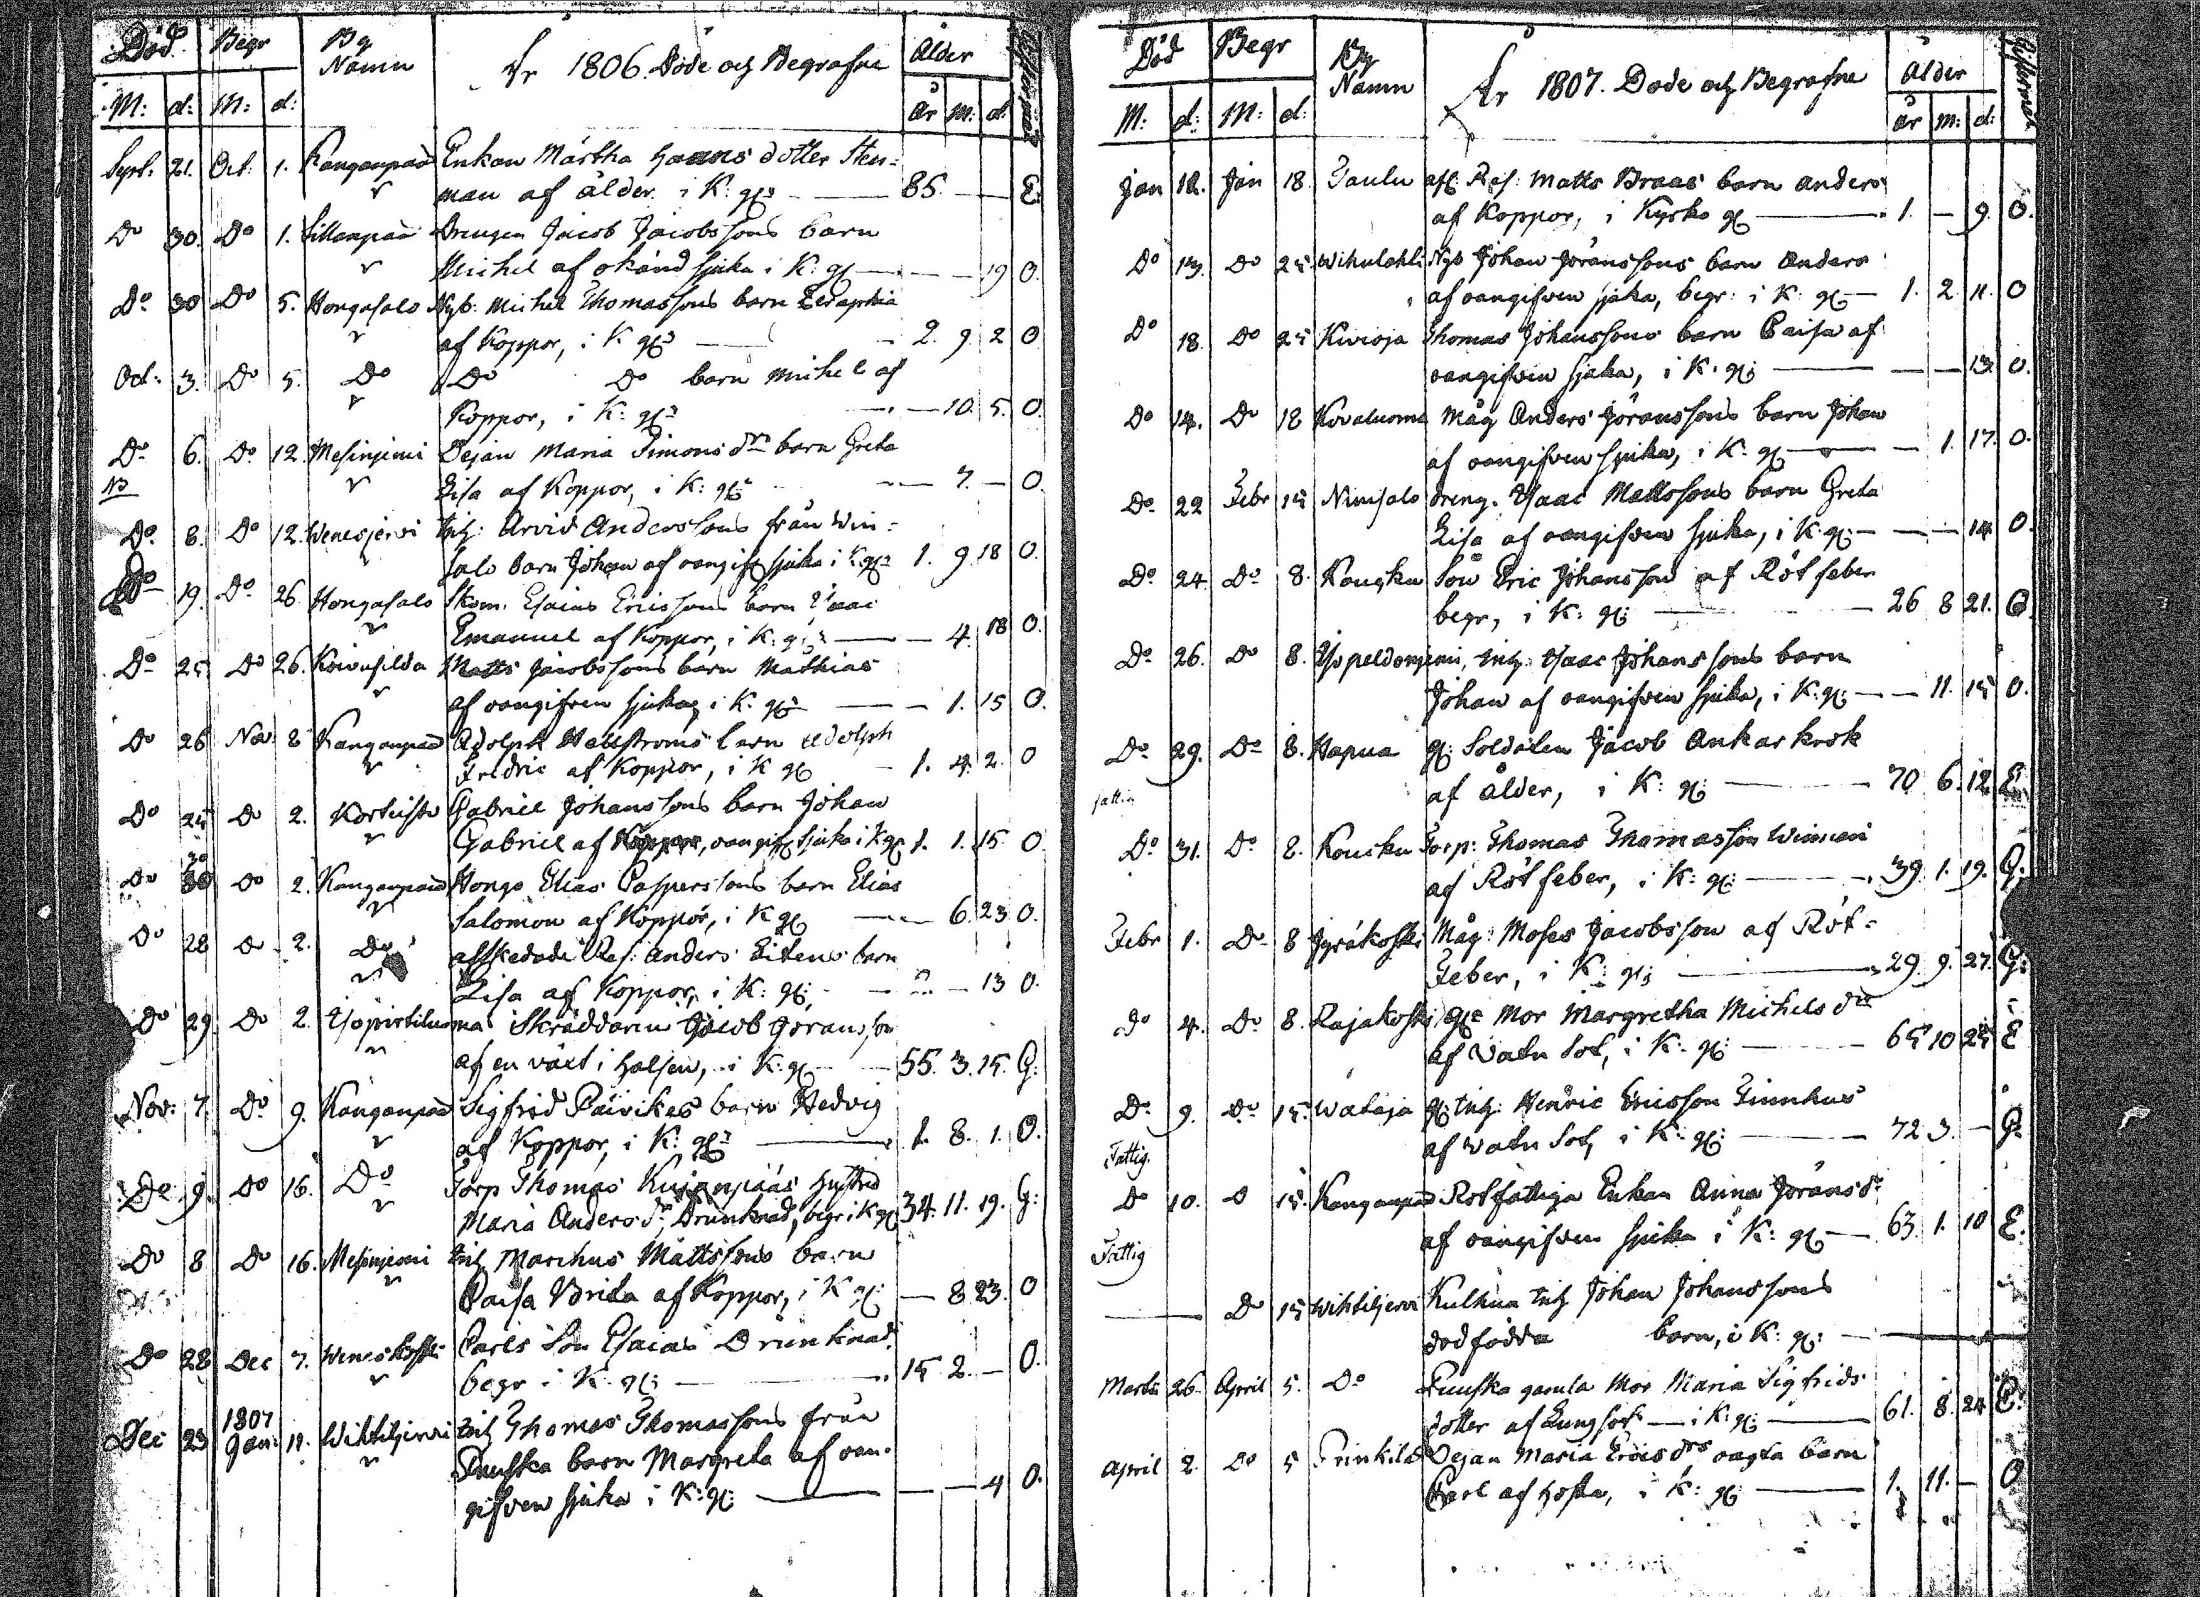 Död Begr By Namn År 1806. Döde och Begrafne Ålder
M: d: M: d: år m: d:
Sept. 21. Oct: 1. Kanganpää Enkan Märtha Hansdotter Sten=
man af ålder i K: gg: 85. E.
Do 30. Do 1. Sillanpää Drengen Jacob Jacobssons barn
Michel af okänd sjuka i K: gg 19 O.
Do 30 Do 5. Hongasalo Nyb: Michel Thomassons barn Seraphia
af Koppor, i K gg 2. 9 2 O
Oct: 3. Do 5. Do Do Do barn Michel af
Koppor, i K: gg: 10. 5. O.
Do 6. Do 12. Mesinjemi Dejan Maria Simons dr barn Greta
Lisa af Koppor, i K: gg: 7. — O.
Do 8. Do 12. Wenesjerwi Inh: Arvid Anderssons från Win=
salo barn Johan af oangif sjuka i K gg 1. 9 18 O.
Do 19. Do 26 Hongasalo Skom. Esaias Ericssons barn Isaac
Emanuel af Koppor, i K: gg: 4. 18 O.
Do 25 Do 26. Koivusilda Matts Jacobssons barn Mathias
af oangifven sjuka, i K: gg: 1. 15 O.
Do 26 Nov 2 Kanganpää Adolph Hellströms barn Adolph
Fredric af Koppor, i K gg 1. 4. 2. O
Do 25 Do 2. Gabriel Johanssons barn Johan
Gabriel af oangif sjuka i K gg 1. 1. 15 O.
Do 30 Do 2. Kanganpää Hongo Elias Caspersons barn Elias
Salomon af Koppor, i K gg 6. 23 O.
Do 28 Do 2. Do afskedade Ref: Anders Eitens barn
Lisa af Koppor, i K: gg: 13 O.
Do 29. Do 2. Skräddaren Jacob Göransson
af en växt i halsen, i K: gg 55. 3. 15. G:
Nov: 7. Do 9. Kanganpää Sigfrid Päivikes barn Hedvig
af Koppor, i K: gg: 1. 8. 1. O.
Do 9. Do 16. Do Torp Thomas Kujanpääs hustru
Maria Anders dr, Drunknad, begr i K gg 34. 11. 19. G:
Do 8 Do 16. Mesinjemi Inh Marchus Mattssons barn
Caisa Brita af Koppor, i K gg: — 8 23. O
Do 28 Dec 7. Weneskoski Carls Son Esaias Drunknad.
begr i K. gg: 15 2. — O.
Dec 23 1807 Jan: 11. Wihtiljerwi Inh Thomas Thomassons från
Puuska barn Margreta af oan=
gifven sjuka i K: gg: 4 O.
Död Begr By Namn År 1807. Döde och Begrafne Ålder
M: d: M: d: år m: d:
Jan 12. Jan 18. Jaulu afs: Ref: Matts Braas barn Anders
af Koppor, i Kyrko gg 1. — 9. O.
Do 13. Do 25 Nyb Johan Jöranssons barn Anders
af oangifven sjuka, begr: i K: gg 1. 2 11. O
Do 18. Do 25 Kivioja Thomas Johanssons barn Caisa af
oangifven sjuka, i K: gg: 13. O.
Do 14. Do 18 Kovaluoma Måg Anders Jöranssons barn Johan
af oangifven sjuka, i K: gg 1. 17. O.
Do 22 Febr 15 Niinisalo Dreng. Isaac Mattssons barn Greta
Lisa af oangifven sjuka, i K: gg: 14 O.
Do 24 Do 8. Kousku Son Eric Johansson af Röt feber
begr, i K: gg: 26 8 21. G.
Do 26. Do 8. Inh: Isaac Johanssons barn
Johan af oangifven sjuka, i K: gg: 11. 15 O.
Do 29. Do 8. Hapua gg: Soldaten Jacob Ankarkrok
fattig af ålder, i K: gg: 70 6. 12. E.
Do 31. Do 8. Kousku Torp: Thomas Thomasson
af Rötfeber, i K: gg: 39. 1. 19. G.
Febr 1. Do 8 Jyräkoski Måg: Moses Jacobsson af Röt=
Feber, i K: gg: 29. 9. 27. G:
Do 4. Do 8. Rajakoski ge Mor Margretha Michels dr
af Vatu Sot, i K: gg: 65 10 25 E
Do 9. Do 15. Wataja gg: Inh: Henric Ericsson Finnhus
Fattig. af Vatu Sot, i K: gg: 72 3. — G.
Do 10. Do 15. Kanganpää Rotfattiga Enkan Anna Jörans dr
Fattig af oangifven sjuka i K: gg 63. 1. 10 E.
Do 15 Wihtiljerwi Kulhua Inh Johan Johanssons
dödfödda barn, i K: gg:
Martii 26. April 5. Do Puuska gamla Mor Maria Sigfrids
dotter af Lungsot i K: gg: 61. 8. 24 E.
April 2. Do 5 Prinkilä Dejan Maria Erics drs oägta barn
Carl af hosta, i K: gg: 1. 11. — O